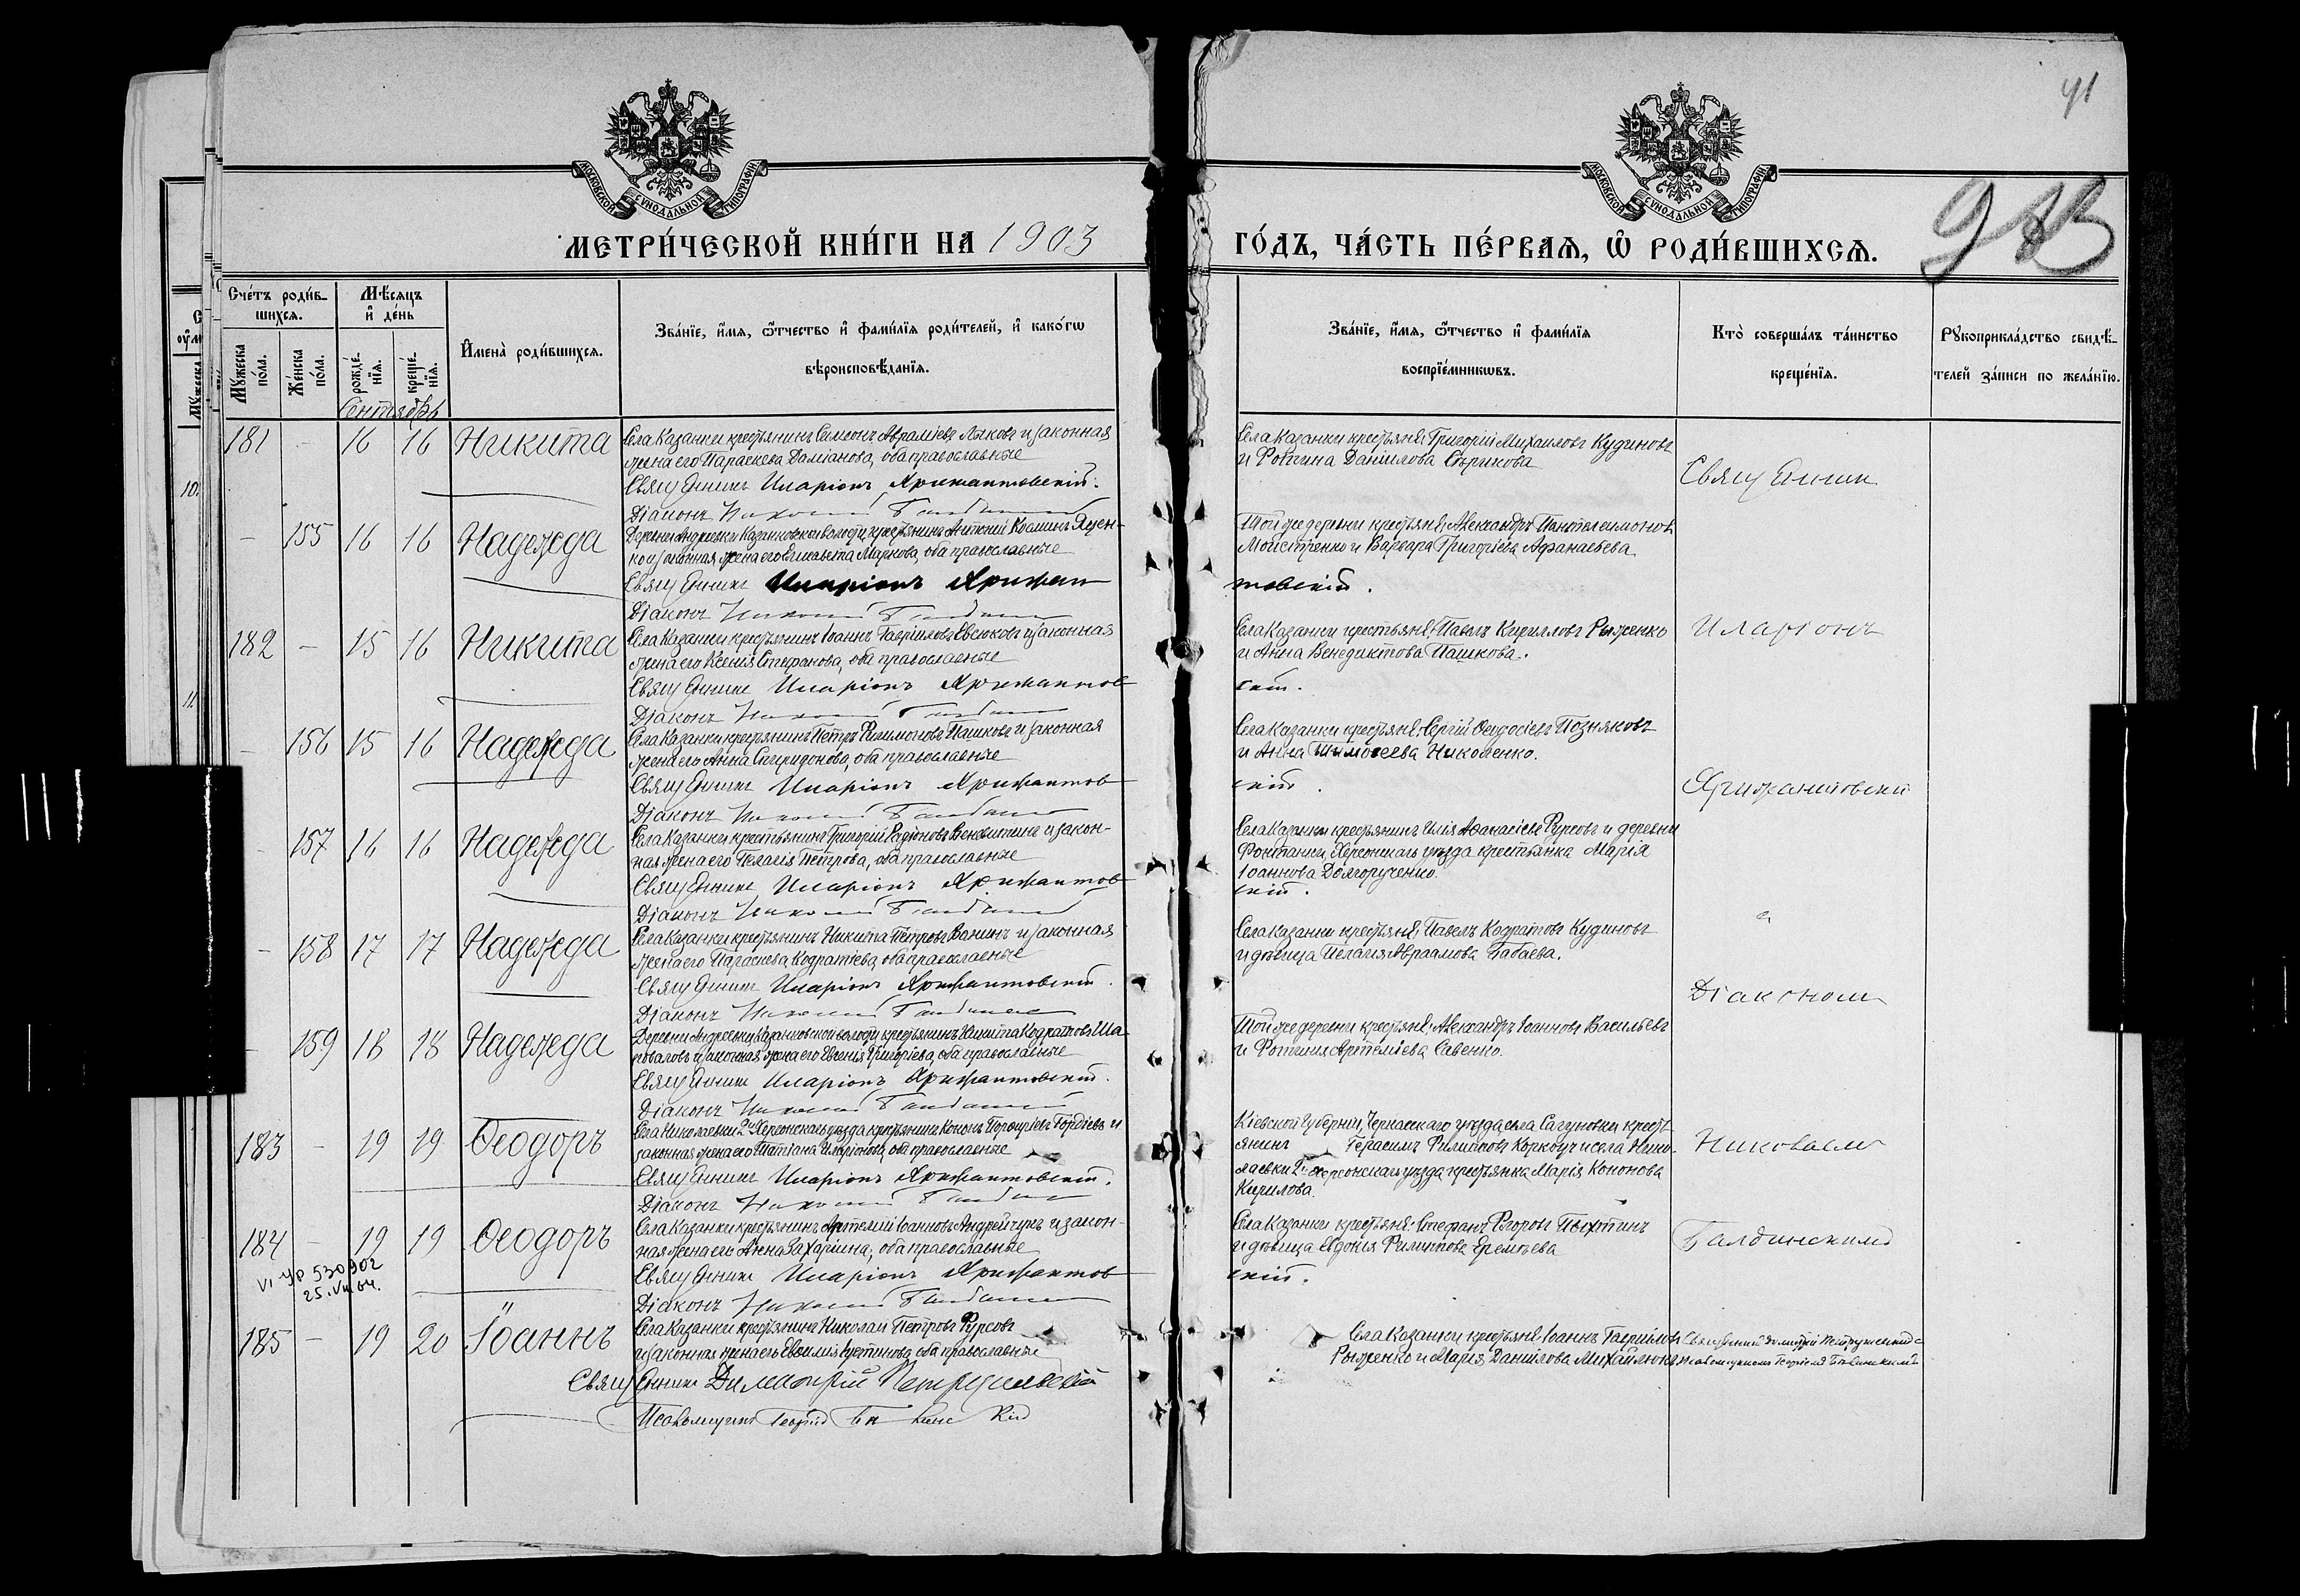 41
МОСКОВСКОЙ СУНОДАЛЬНОЙ ТИПОГРАФІИ
МОСКОВСКОЙ СУНОДАЛЬНОЙ ТИПОГРАФІИ
МЕТРИ́ЧЕСКОЙ КНИ́ГИ НА 1903
ГО́ДЪ, ЧА́СТЬ ПЕ́РВАѦ, Ѡ҆ РОДИ́ВШИХСѦ.
Сче́тъ роди́в-
шихсѧ.
Мꙋ́жеска
по́ла.
Же́нска
по́ла.
Мѣ́сѧцъ
и҆ де́нь
рожде́-
нїѧ.
креще́-
нїѧ.
И҆мена̀ роди́вшихсѧ.
Зва́нїе, и҆́мѧ, ѻ҆́тчество и҆ фами́лїѧ роди́телей, и҆ како́гѡ
вѣроисповѣ́данїѧ.
Зва́нїе, и҆́мѧ, ѻ҆́тчество и҆ фами́лїѧ
воспрїе́мникѡвъ.
Кто̀ соверша́лъ та́инство
креще́нїѧ.
Рꙋкоприкла́дство свидѣ́-
телей за́писи по жела́нїю.
Сентябрь
181 - 16 16 Никита
Села Казанки крестьянинъ Симеонъ Авраміевъ Лыковъ и законная
жена его Параскева Даміанова, оба православные
Священникъ Иларіонъ Крижантовскій.
Діаконъ Николай
Села Казанки крестьяне: Григорій Михаиловъ Кудиновъ
и Фотина Даніилова Сѣрикова
Священник
- 155 16 16 Надежда
Деревни Андреевки Казанковской волости, крестьянинъ Антоній Косминъ Яцен-
ко и законная жена его Елисавета Маркова, оба православные
Священникъ Иларіонъ Крижан
товскій.
Діаконъ Николай
Той же деревни крестьяне: Александръ Пантелеимоновъ
Мойстренко и Варвара Григоріева Афанасьева
182 - 15 16 Никита
Села Казанки крестьянинъ Іоаннъ Гавріиловъ Евсюковъ и законная
жена его Ксенія Стефанова, оба православные
Священникъ Иларіонъ Крижантов
скій.
Діаконъ Николай
Села Казанки крестьяне: Павелъ Кирилловъ Рыженко
и Анна Венедиктова Пашкова.
Иларіонъ
- 156 15 16 Надежда
Села Казанки крестьянинъ Петръ Филимоновъ Пашковъ и законная
жена его Анна Спиридонова, оба православные
Священникъ Иларіонъ Крижантов
скій.
Діаконъ Николай
Села Казанки крестьяне: Сергій Ѳеодосіевъ Позняковъ
и Анна Тимоѳеева Николенко.
Крижантовскій
- 157 16 16 Надежда
Села Казанки крестьянинъ Григорій Родіоновъ и закон-
ная жена его Пелагія Петрова, оба православные
Священникъ Иларіонъ Крижантов
скій.
Діаконъ Николай
Села Казанки крестьянинъ Илія Аѳанасіевъ Фурсовъ и деревни
Фонтанки, Херсонскаго уѣзда крестьянка Марія
Іоаннова Долгорученко.
- 158 17 17 Надежда
Села Казанки крестьянинъ Никита Петровъ Ванинъ и законная
жена его Параскева Кодратіева, оба православные
Священникъ Иларіонъ Крижантовскій.
Діаконъ Николай
Села Казанки крестьяне: Павелъ Кодратовъ Кудиновъ
и дѣвица Пелагія Авраамова Бабаева.
Діакономъ
- 159 18 18 Надежда
Деревни Андреевки, Казанковской волости, крестьянинъ Никита Кодратовъ Ша-
поваловъ и законная жена его Евгенія Григоріева, оба православные
Священникъ Иларіонъ Крижантовскій.
Діаконъ Николай
Той же деревни крестьяне: Александръ Іоанновъ Васильевъ
и Фотинія Артеміева Савенко.
183 - 19 19 Ѳеодоръ
Села Николаевки 2й Херсонскаго уѣзда крестьянинъ Кононъ Порфиріевъ Гордіевъ и
законная жена его Татіана Иларіонова, оба православные
Священникъ Иларіонъ Крижантовскій.
Діаконъ Николай
Кіевской Губерніи, Черкасскаго уѣзда села Сагуновки крест-
янинъ Герасимъ Филипповъ Коркоцъ и села Нико-
лаевки 2й Херсонскаго уѣзда крестьянка Марія Кононова
Кирилова.
Николаемъ
184 - 19 19 Ѳеодоръ
VI УР 530902
25. VIII 64.
Села Казанки крестьянинъ Артемій Іоанновъ Андрейчукъ и закон-
ная жена его Анна Захаріина, оба православные
Священникъ Иларіонъ Крижантов
скій.
Діаконъ Николай
Села Казанки крестьяне: Стефанъ Пыхтинъ
и дѣвица Евдокія Филиппова Еремѣева
Балдинскимъ
185 - 19 20 Іоаннъ
Села Казанки крестьянинъ Николай Петровъ Фурсовъ
и законная жена его Евѳимія Іустинова, оба православные
Священникъ Димитрій Петрушевскій
Псаломщикъ Георгій
Села Казанки крестьяне: Іоаннъ Гавріиловъ
Рыженко и Марія Даніилова Михайлюкъ
Священникъ Димитрій Петрушевскій съ
псаломщикомъ Георгіемъ